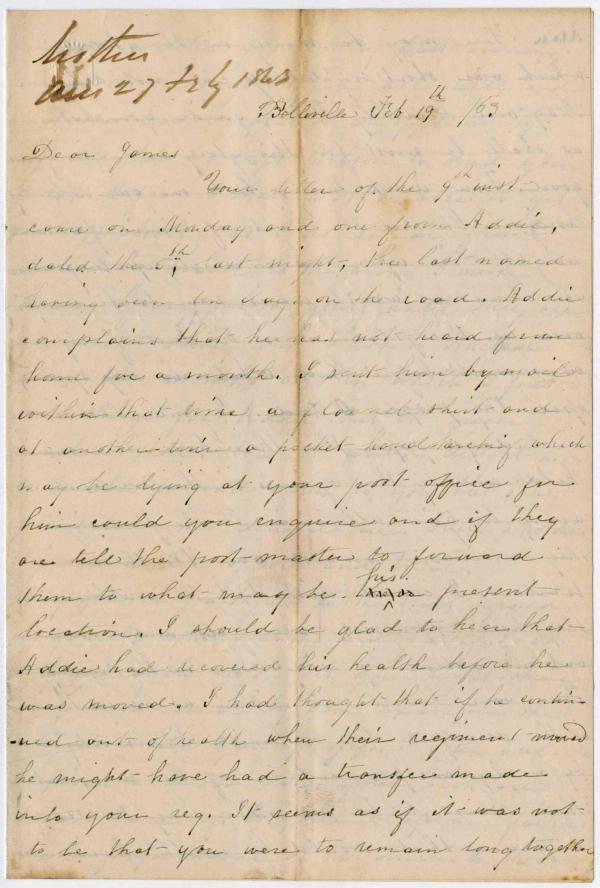 Mother
ans 27 Feby 1863
Belleville Feb 19th /63
Dear James
Your letter of the 9th inst
came on Monday and one from Addie,
dated the 5th, last night, the last named
having been ten days on the road. Addie
complains that he has not heard from
home for a month. I sent him by mail
within that time a flannel shirt and
at another time a pocket handkerchief which
may be lying at your post office for
him could you enquire and if they
are tell the post-master to forward
them to what may be his present
location. I should be glad to hear that
Addie had recovered his health before he
was moved. I had thought that if he contin-
-ued out of health when their regiment moved
he might have had a transfer made
into your reg. It seems as if it was not
to be that you were to remain long together